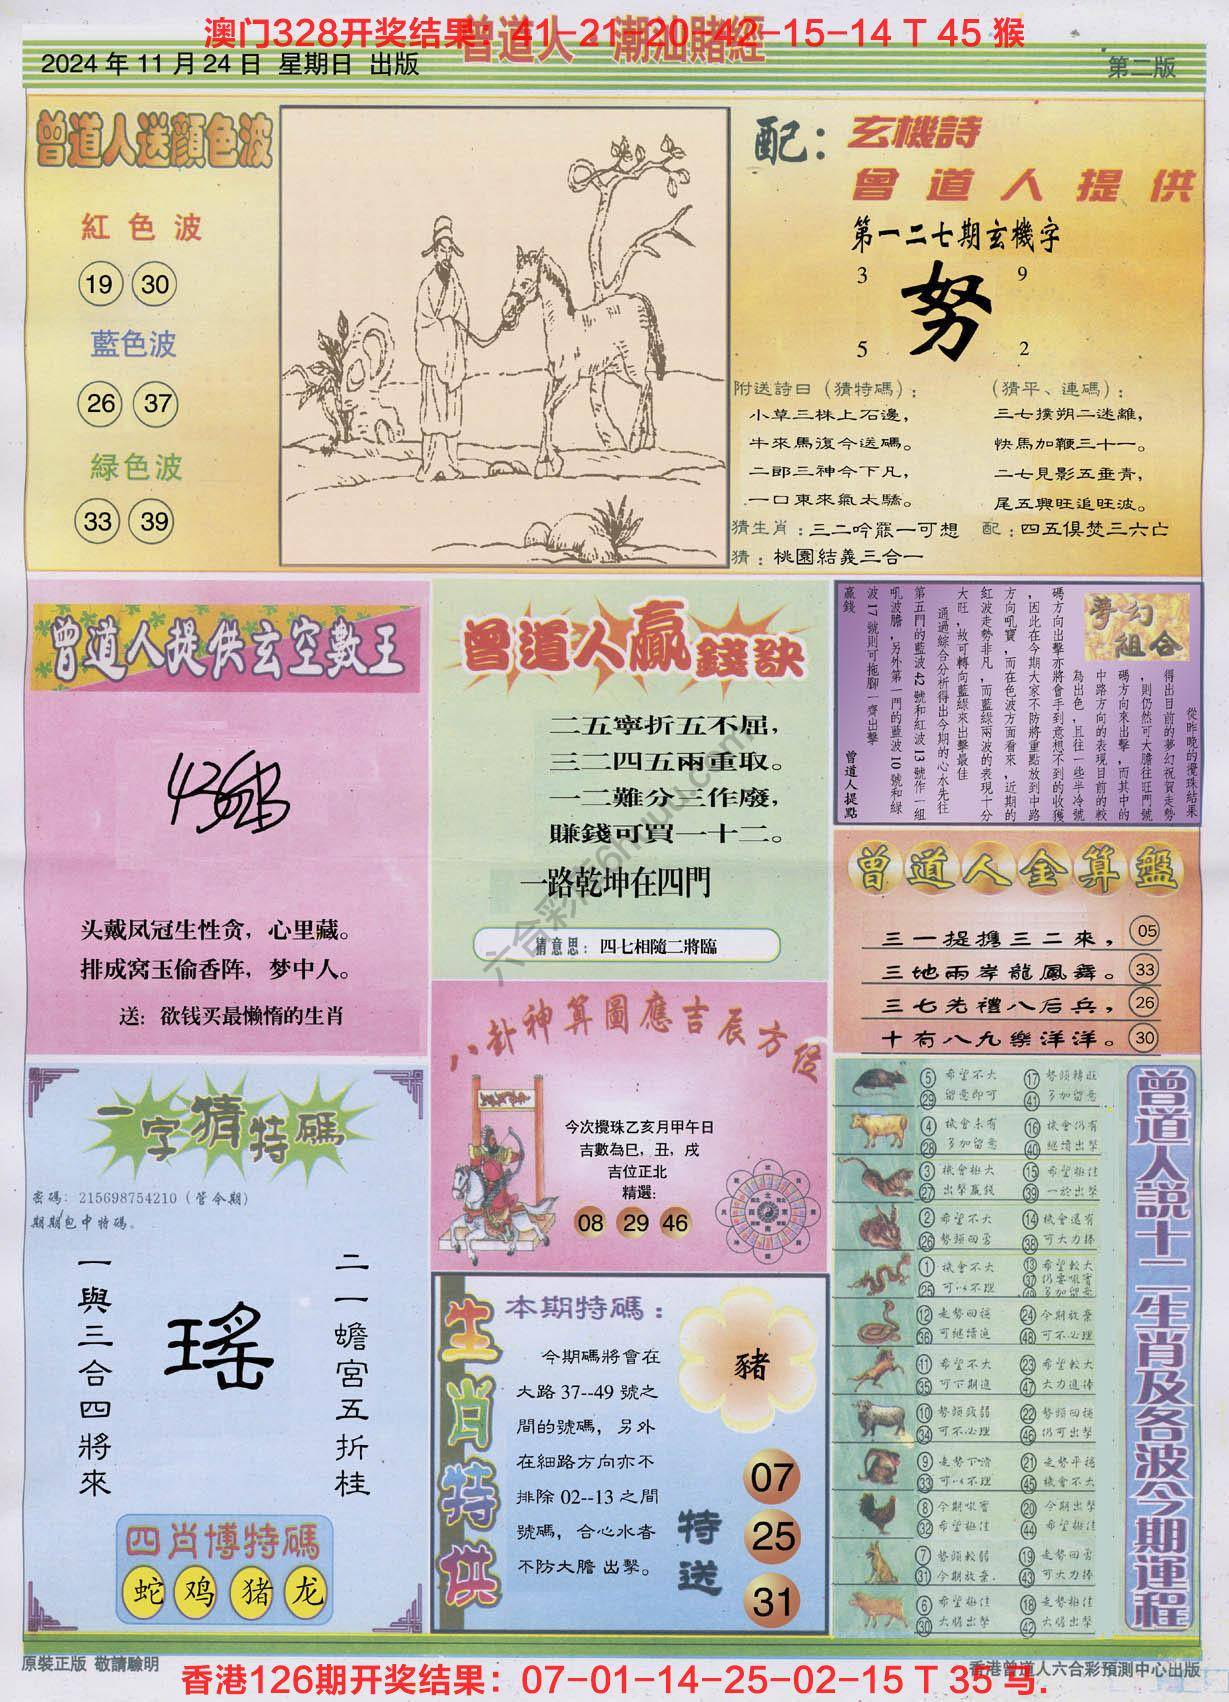 澳门328开奖结果：41-21-20-42-15-14 T 45 猴
曾道人 潮汕賭經
2024 年 11 月 24 日 星期日 出版
第二版
曾道人送顔色波
紅色波
19 30
藍色波
26 37
緑色波
33 39
配：玄機詩
曾道人提供
第一二七期玄機字
3 9
努
5 2
附送詩曰（猜特碼）：
小草三株上石邊，
牛來馬復今送碼。
二郎三神今下凡，
一口東來氣太驕。
（猜平、連碼）：
三七撲朔二迷離，
快馬加鞭三十一。
二七見影五垂青，
尾五興旺追旺波。
猜生肖：三二吟罷一可想
配：四五俱焚三六亡
猜：桃園結義三合一
曾道人提供玄空數王
头戴凤冠生性贪，心里藏。
排成窝玉偷香阵，梦中人。
送：欲钱买最懒惰的生肖
曾道人贏錢訣
二五寧折五不屈，
三二四五兩重取。
一二難分三作廢，
賺錢可買一十二。
一路乾坤在四門
猜意思：四七相隨二將臨
夢幻組合
從昨晚的攪珠結果
得出目前的夢幻祝賀走勢
，則仍然可大膽往旺門號
碼方向來出擊，而其中的
中路方向的表現目前的較
為出色，且往一些半冷號
碼方向出擊亦將會手到意想不到的收獲
，因此在今期大家不防將重點放到中路
方向吼寶，而在色波方面看來，近期的
紅波走勢非凡，而藍綠兩波的表現十分
大旺，故可轉向藍綠來出擊最佳
通過綜合分析得出今期的心水先往
第五門的藍波 42 號和紅波 13 號作一組
吼波膽，另外第一門的藍波 10 號和綠
波 17 號則可拖腳一齊出擊
贏錢
曾道人提點
曾道人金算盤
三一提攜三二來， 05
三地兩岸龍鳳舞。 33
三七先禮八后兵， 26
十有八九樂洋洋。 30
八卦神算圖應吉辰方位
今次攪珠乙亥月甲午日
吉數為巳，丑，戌
吉位正北
精選：
08 29 46
一字猜特碼
密碼：215698754210（管今期）
期期包中特碼。
二一蟾宮五折桂
瑤
一與三合四將來
四肖博特碼
蛇 鸡 猪 龙
生肖特供
本期特碼：
今期碼將會在
大路 37--49 號之
間的號碼，另外
在細路方向亦不
排除 02--13 之間
號碼，合心水者
不防大膽 出擊。
豬
特送
07
25
31
曾道人説十二生肖及各波今期運程
5 希望不大 17 勢頭轉旺
29 留意即可 41 多加留意
4 機會未有 16 機會仍有
28 多加留意 40 繼續出擊
3 機會極大 15 希望極佳
27 出擊贏錢 39 一於出擊
2 希望不大 14 機會還有
26 勢頭回勇 38 可大力捧
1 機會不大 13 希望較大
25 可以不理 37 仍要吼實
49 多加留意
12 走勢回穩 24 今期放棄
36 可繼續追 48 可不必理
11 希望不大 23 希望較大
35 可下期進 47 大力進捧
10 勢頭疲弱 22 勢頭回穩
34 可不必理 46 仍可出擊
9 走勢下滑 21 走勢平穩
33 可以不理 45 機會不大
8 今期吼實 20 今期出擊
32 希望極佳 44 希望極佳
7 勢頭較弱 19 走勢回勇
31 今期放棄. 43 可大力捧
6 希望極佳 18 走勢極佳
30 大膽出擊 42 大膽出擊
原裝正版 敬請驗明
香港曾道人六合彩預測中心出版
香港126期开奖结果：07-01-14-25-02-15 T 35 马.